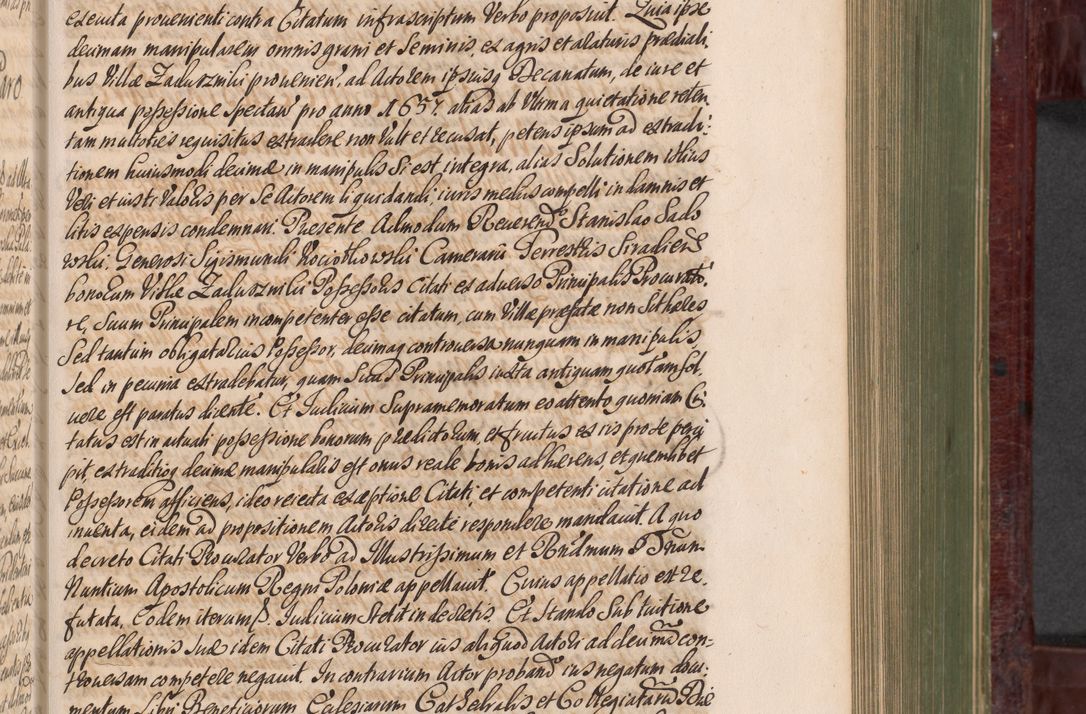 executa prouenienti contra Citatum infrascriptum Verbo proposuit. Quia ipse
decimam manipularem omnis grani et seminis, ex agris et araturis prædiali,
bus Villæ Zaduszniki prouenien', ad Actorem ipsiusq Decanatum, de iure et
antiqua possessione spectan' pro anno 1657. alias ab Vltima quietatione reten,
tam multoties requisitus extradere non Vult et recusat, petens ipsum ad extradi,
tionem huiusmodi decimæ in manipulis si est integra, alias Solutionem illius
Veri et iusti Valoris per se Actorem liquidandi, iuris mediis compelli in damnis et
litis expensis condemnari. Præsente Admodum Reuerend Stanislao Sado
wski, Generosi Sigismundi Kociołkowski Camerarii Terrestris Siradien
bonorum Villæ Zaduszniki Possessoris Citati ex aduerso Principalis Procurato,
re, Suum Principalem incompetenter esse citatum, cum Villæ præfatæ non sit hæres
sed tantum obligatarius Possessor, decimaq controuersa nunquam in manipulis,
sed in pecunia extradebatur, quam suus Principalis iuxta antiquam quotam sol,
uere est paratus dicente. Et Iudicium Supramemoratum eo attento quoniam Ci,
tatus est in actuali possessione bonorum prædictorum, et fructus ex iis pro se perci
pit, extraditioq decimæ manipularis est onus reale bonis adhærens, et quemlibet
Possessorem afficiens, ideo reiecta exceptione Citati, et competenti citatione ad
inuenta, eidem ad propositionem Actoris directe respondere mandauit. A quo
decreto Citati Procurator Verbo ad Illustrissimum et Rndmum D Dnum
Nuntium Apostolicum Regni Poloniæ appellauit. Cuius appellatio est re,
futata, Eodem iterum p. Iudicium stetit in decretis. Et stando sub tuitione
appellationis suæ idem Citati Procurator ius aliquod Actori ad decimã con-
trouersam competere negauit. In contrarium Actor proband ius negatum docu,
mentum Libri Beneficiorum Ecclesiarum Cathedralis et Collegiatarũ Diæ